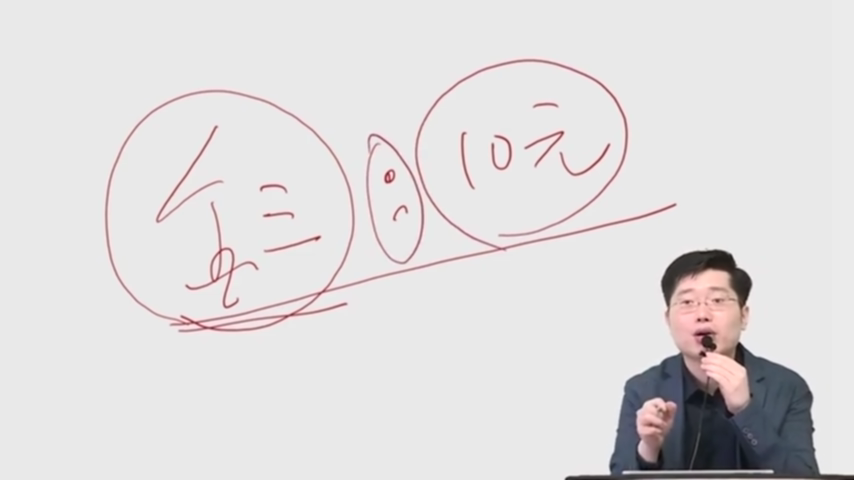 三：10元